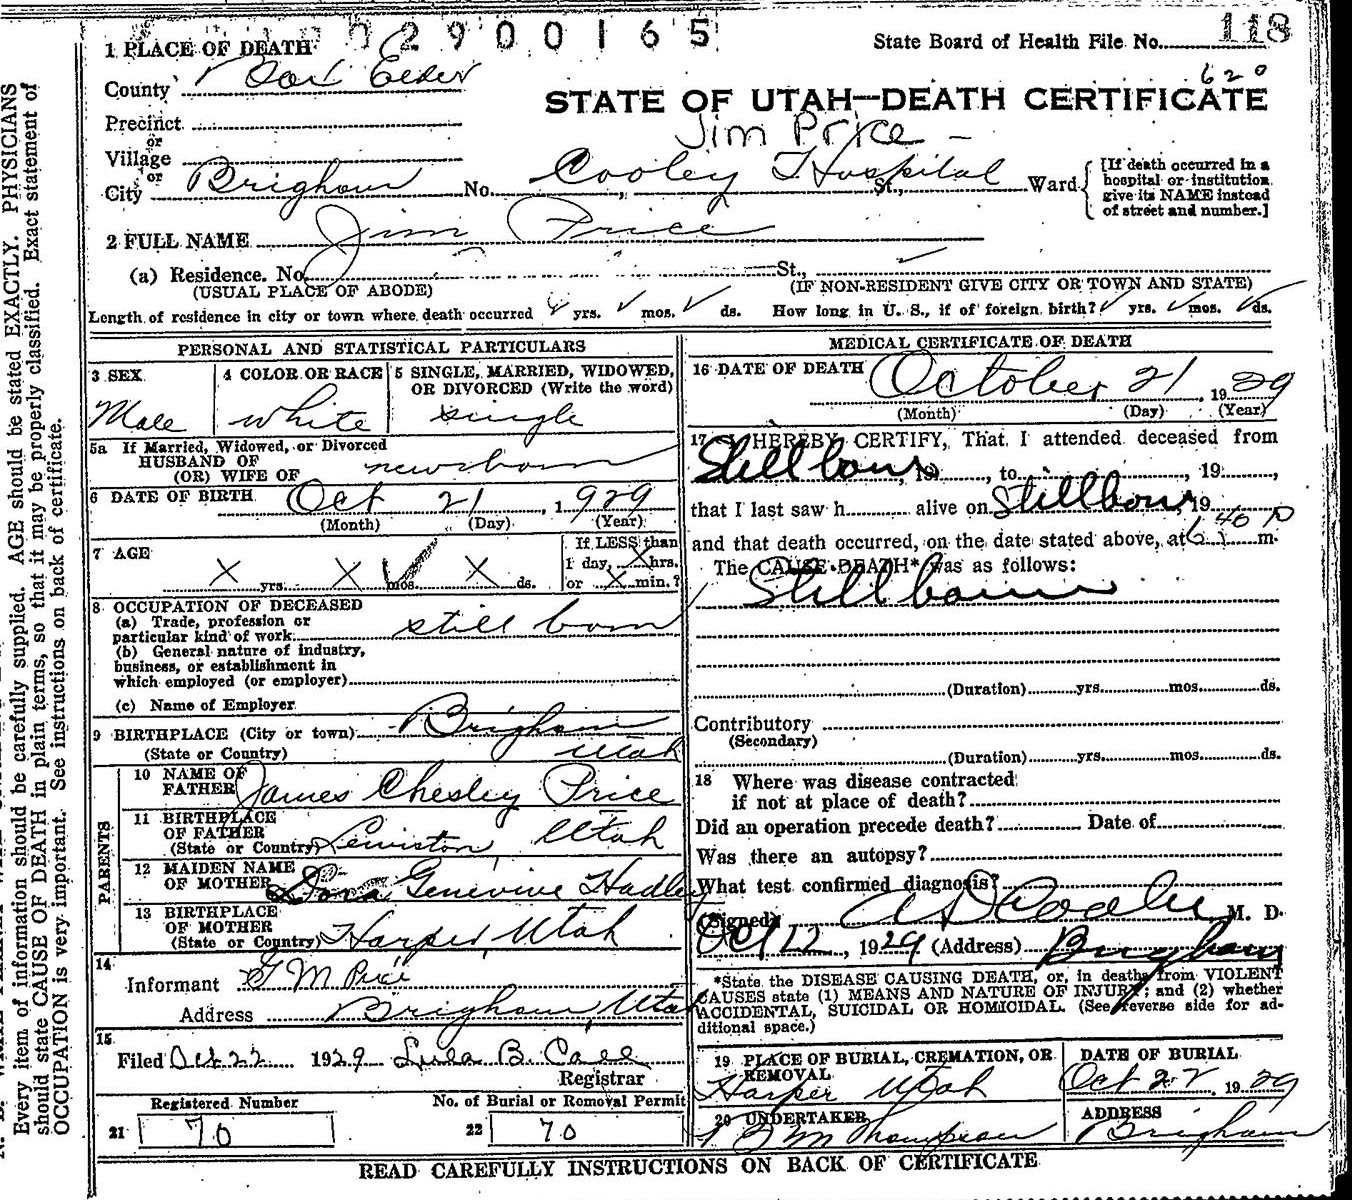 2900165
118
State Board of Health File No.
1 PLACE OF DEATH
County Box Elder
620
STATE OF UTAH—DEATH CERTIFICATE
Precinct
or
Village
or
City Brigham No. Cooley Hospital St., Ward
Jim Price
[If death occurred in a
hospital or institution
give its NAME instead
of street and number.]
2 FULL NAME Jim Price
(a) Residence. No. St.,
(USUAL PLACE OF ABODE) (IF NON-RESIDENT GIVE CITY OR TOWN AND STATE)
Length of residence in city or town where death occurred yrs. mos. ds. How long in U. S., if of foreign birth? yrs. mos. ds.
PERSONAL AND STATISTICAL PARTICULARS
3 SEX
Male
4 COLOR OR RACE
white
5 SINGLE, MARRIED, WIDOWED,
OR DIVORCED (Write the word)
single
5a If Married, Widowed, or Divorced
HUSBAND OF
(OR) WIFE OF newborn
6 DATE OF BIRTH Oct 21, 1929
(Month) (Day) (Year)
7 AGE X yrs. X mos. X ds.
If LESS than
1 day, X hrs.
or X min.?
8 OCCUPATION OF DECEASED
(a) Trade, profession or
particular kind of work still born
(b) General nature of industry,
business, or establishment in
which employed (or employer)
(c) Name of Employer
9 BIRTHPLACE (City or town) Brigham
(State or Country) Utah
PARENTS
10 NAME OF
FATHER James Chesley Price
11 BIRTHPLACE
OF FATHER
(State or Country) Lewiston, Utah
12 MAIDEN NAME
OF MOTHER Dora Genevive Hadley
13 BIRTHPLACE
OF MOTHER
(State or Country) Harper, Utah
14
Informant G M Price
Address Brigham, Utah
15
Filed Oct 22 1929 Lula B. Call
Registrar
Registered Number
21 70
No. of Burial or Removal Permit
22 70
MEDICAL CERTIFICATE OF DEATH
16 DATE OF DEATH October 21, 1929
(Month) (Day) (Year)
17 I HEREBY CERTIFY, That I attended deceased from
Stillborn, 19, to, 19,
that I last saw h alive on Stillborn 19
and that death occurred, on the date stated above, at 6 40 P m.
The CAUSE DEATH* was as follows:
Stillborn
(Duration) yrs. mos. ds.
Contributory
(Secondary)
(Duration) yrs. mos. ds.
18 Where was disease contracted
if not at place of death?
Did an operation precede death? Date of
Was there an autopsy?
What test confirmed diagnosis?
(Signed) A D Cooley M. D.
Oct 22, 1929 (Address) Brigham
*State the DISEASE CAUSING DEATH, or, in deaths from VIOLENT
CAUSES state (1) MEANS AND NATURE OF INJURY; and (2) whether
ACCIDENTAL, SUICIDAL OR HOMICIDAL. (See reverse side for ad-
ditional space.)
19 PLACE OF BURIAL, CREMATION, OR
REMOVAL
Harper Utah
DATE OF BURIAL
Oct 22, 1929
20 UNDERTAKER
M Thompson
ADDRESS
Brigham
READ CAREFULLY INSTRUCTIONS ON BACK OF CERTIFICATE
Every item of information should be carefully supplied. AGE should be stated EXACTLY. PHYSICIANS
should state CAUSE OF DEATH in plain terms, so that it may be properly classified. Exact statement of
OCCUPATION is very important. See instructions on back of certificate.